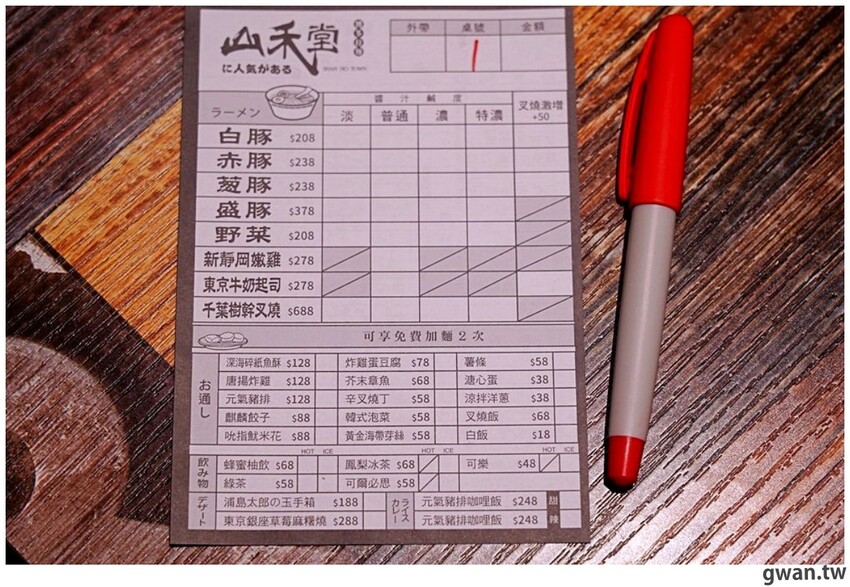 山禾堂
に人気がある
外帶 桌號 金額
1
ラーメン
醬汁鹹度
淡 普通 濃 特濃
叉燒激增
+50
白豚 $208
赤豚 $238
葱豚 $238
盛豚 $378
野菜 $208
新靜岡嫩雞 $278
東京牛奶起司 $278
千葉樹幹叉燒 $688
可享免費加麵2次
お通し
深海碎紙魚酥 $128 炸雞蛋豆腐 $78 薯條 $58
唐揚炸雞 $128 芥末章魚 $68 溏心蛋 $38
元氣豬排 $128 辛叉燒丁 $58 涼拌洋蔥 $38
麒麟餃子 $88 韓式泡菜 $58 叉燒飯 $68
吮指魷米花 $88 黃金海帶芽絲 $58 白飯 $18
HOT ICE HOT ICE HOT ICE
飲み物
蜂蜜柚飲 $68 鳳梨冰茶 $68 可樂 $48
綠茶 $58 可爾必思 $58
デザート
浦島太郎の玉手箱 $188
東京銀座草莓麻糬燒 $288
ライス
カレー
元氣豬排咖哩飯 $248 甜
元氣豬排咖哩飯 $248 辣
gwan.tw